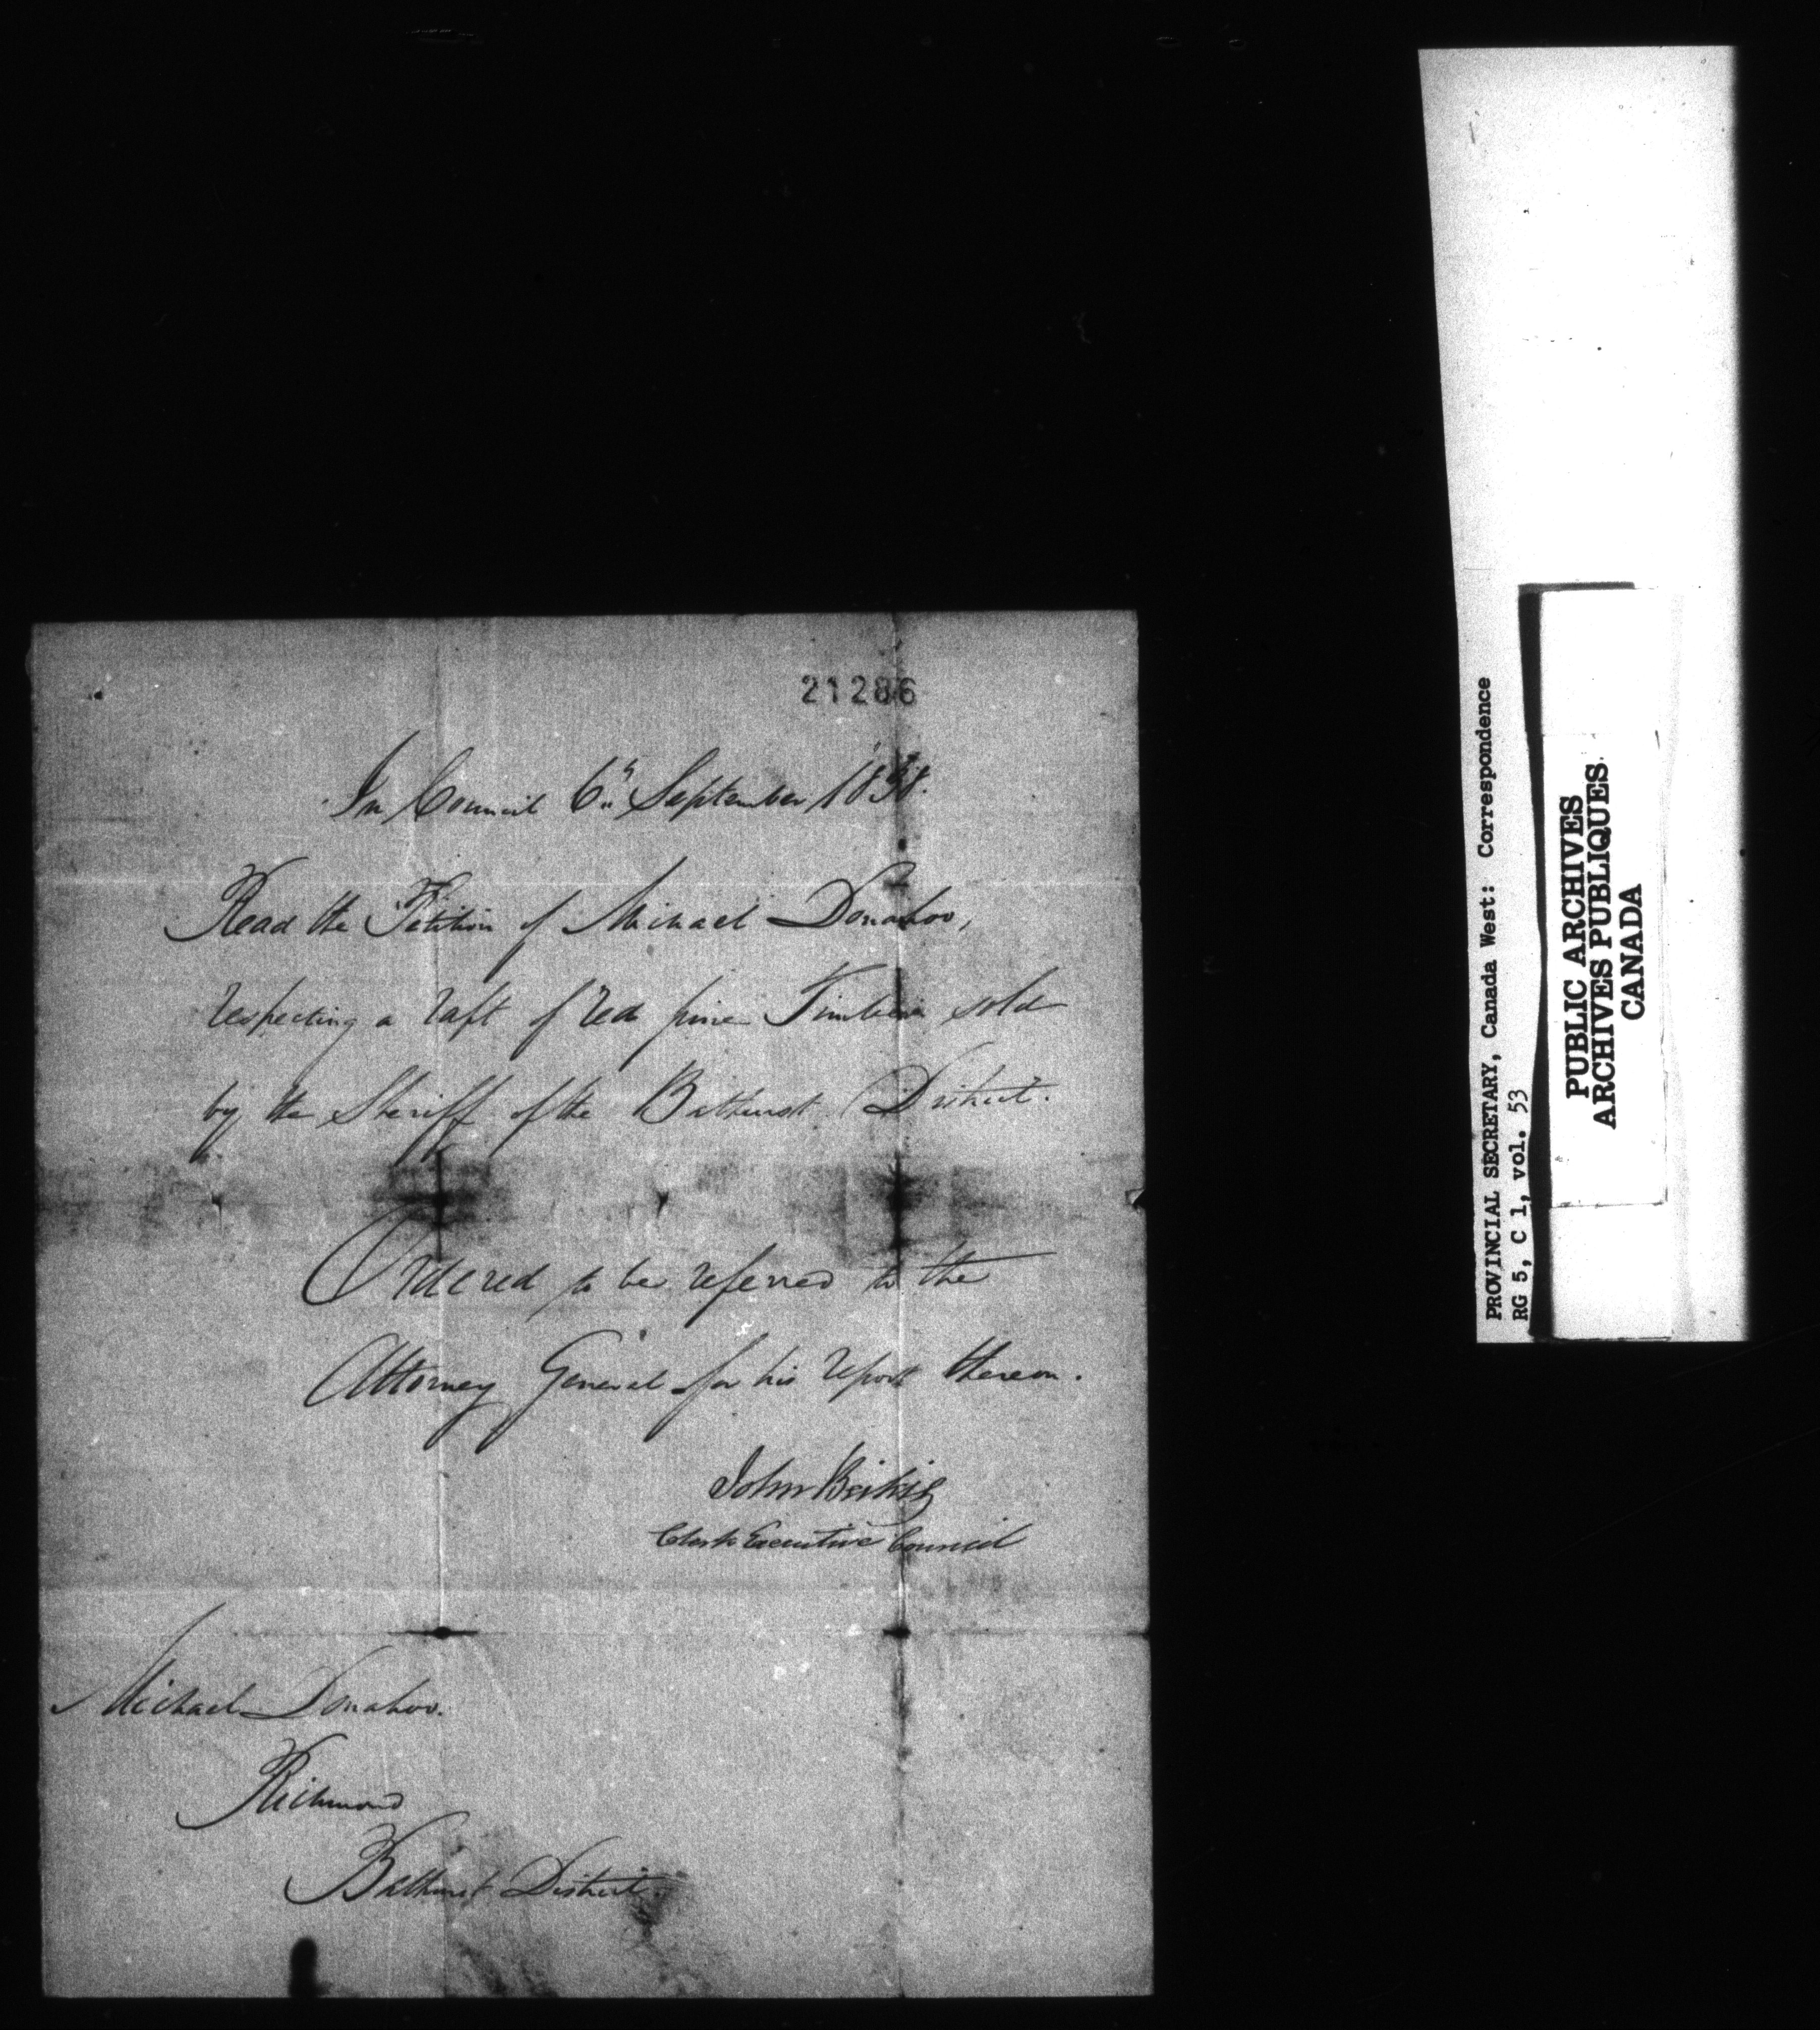 21286
In Council 6th September 1838.
Read the Petition of Michael Donahoo,
respecting a raft of red pine Timber sold
by the Sheriff of the Bathurst District.
Ordered to be referred to the
Attorney General for his report thereon.
John Beikie
Clerk Executive Council
Michael Donahoo.
Richmond
Bathurst District.
PROVINCIAL SECRETARY, Canada West: Correspondence
RG 5, C 1, vol. 53
PUBLIC ARCHIVES
ARCHIVES PUBLIQUES
CANADA